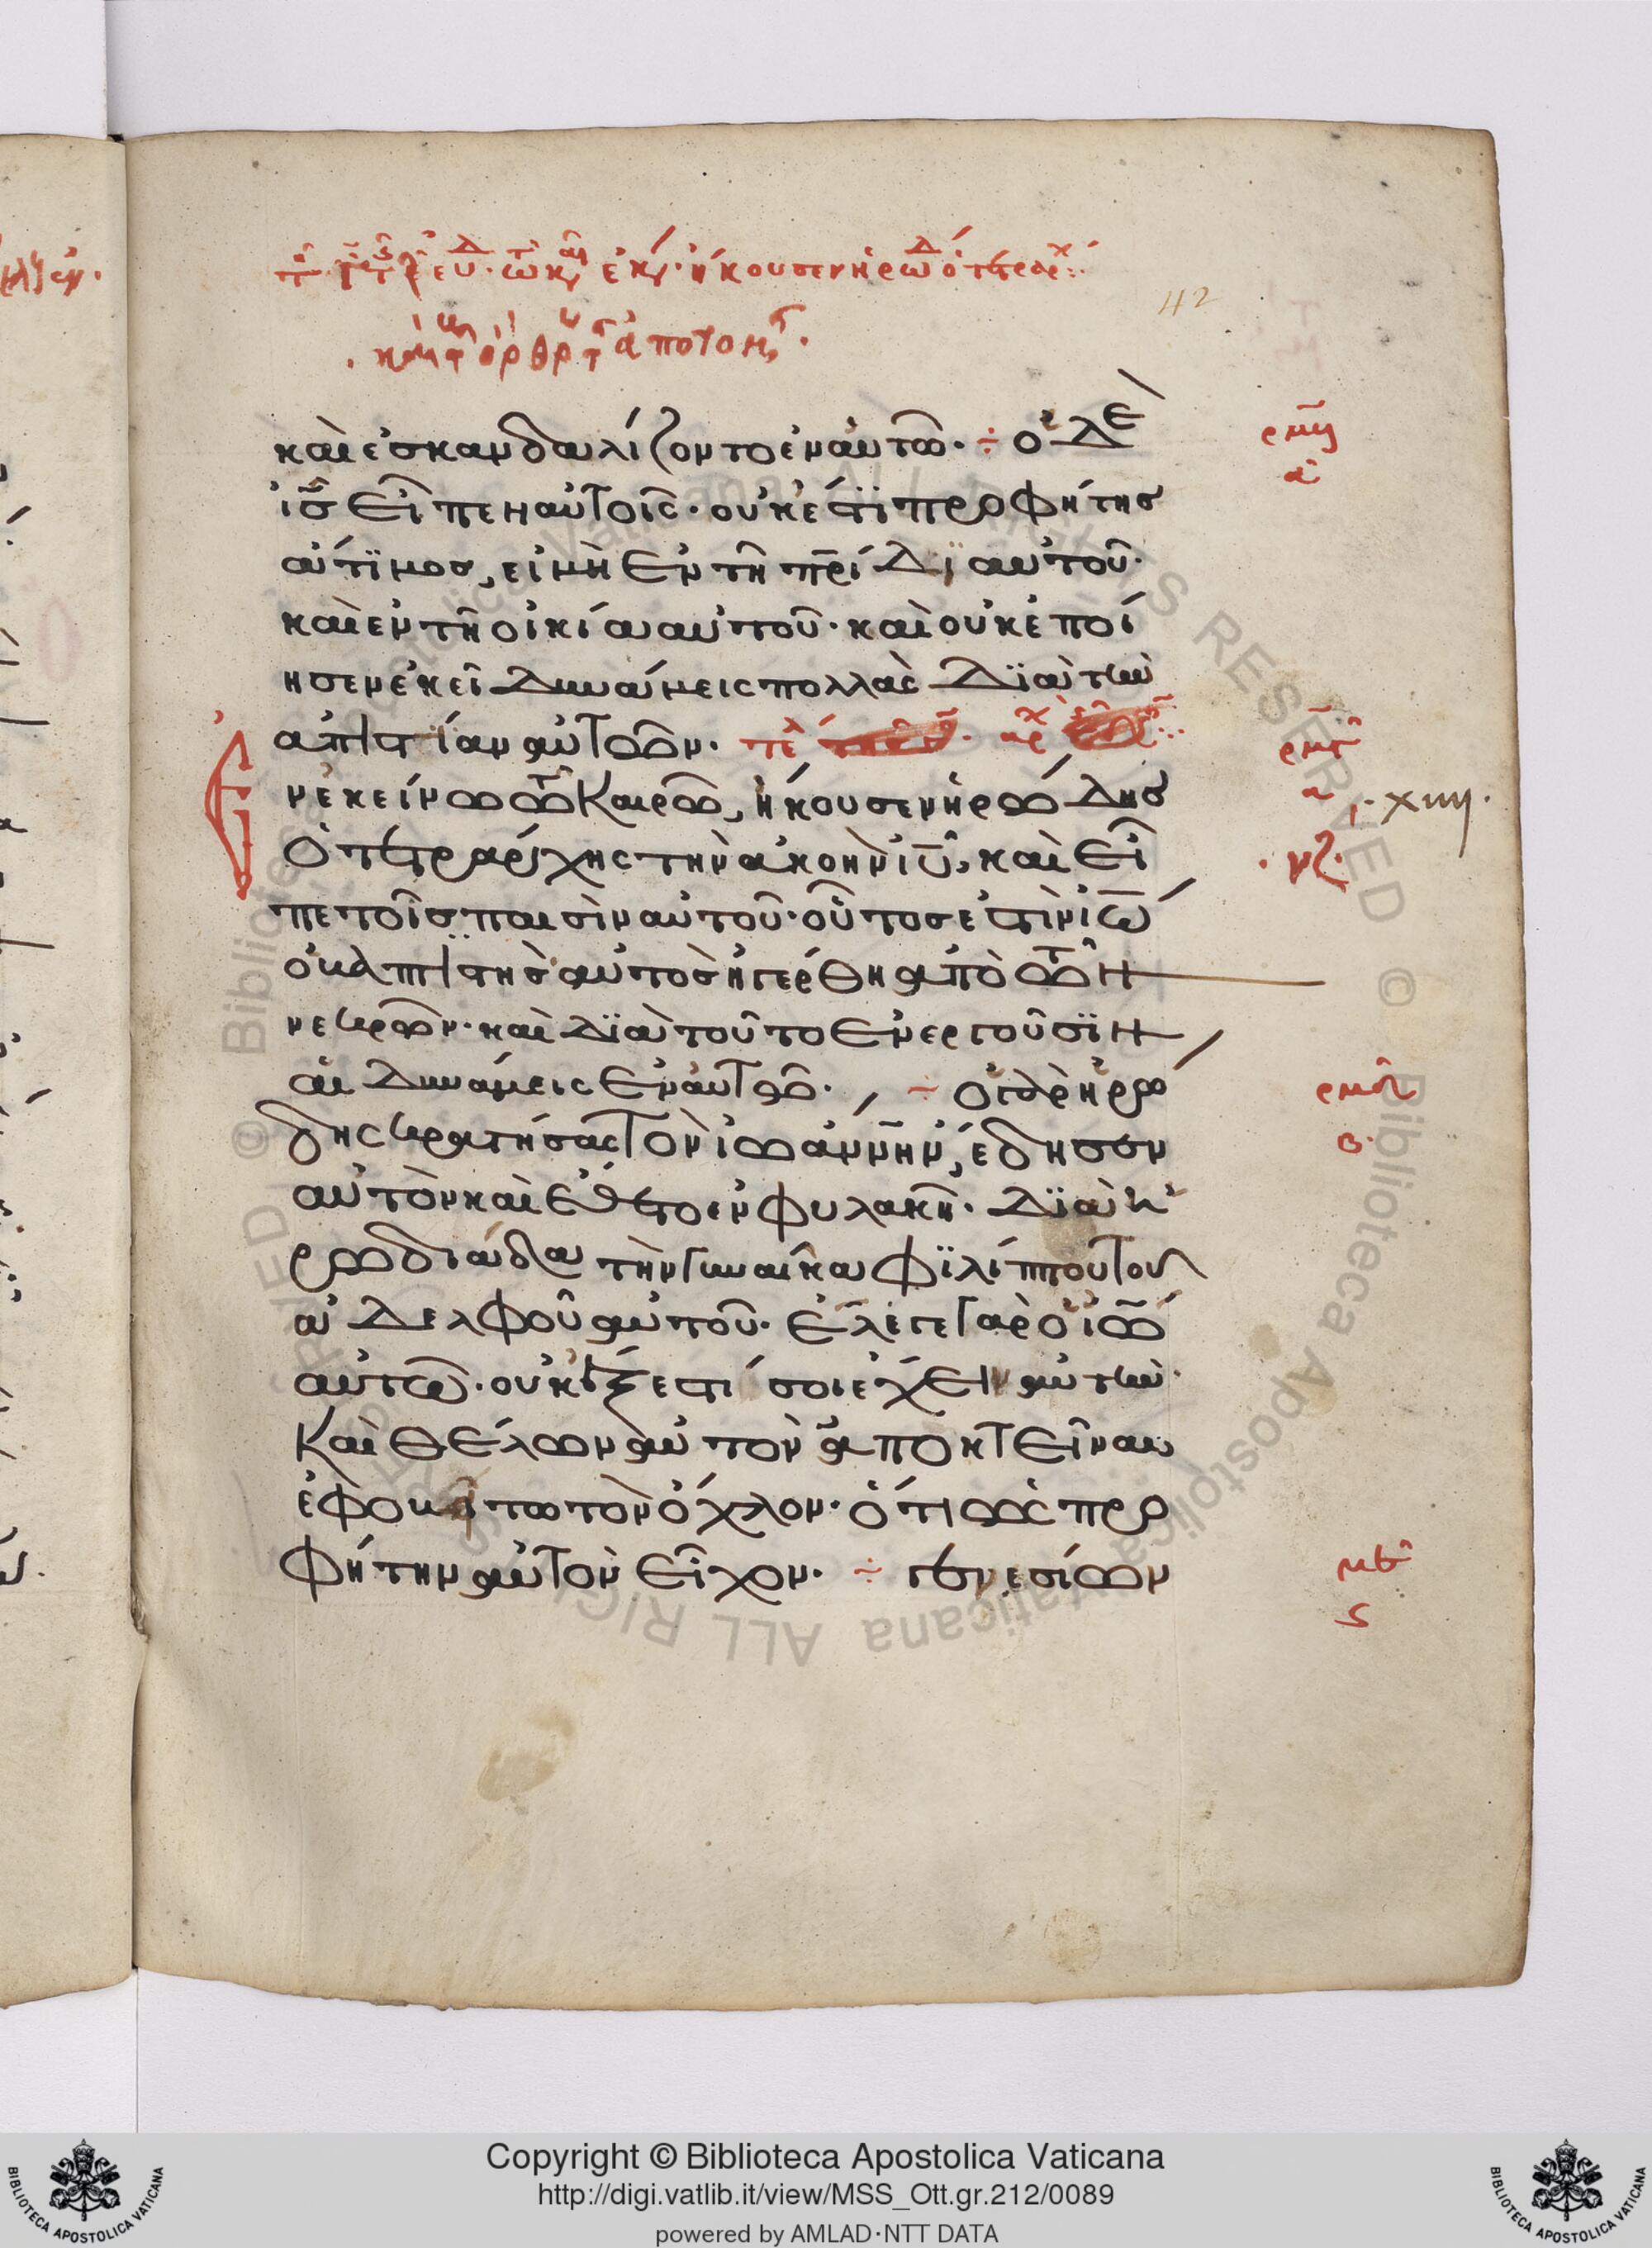 ἤκουσεν ἡρώδ ὁ τετραρχ
42
καὶ ἐσκανδαλίζοντο ἐν αὐτῶ· ÷ ὁ δὲ
ις εἶπεν αὐτοῖς· οὐκ ἔστι προφήτης
ἄτιμος, εἰ μὴ ἐν τῆ πρίδι αὐτοῦ·
καὶ ἐν τῆ οἰκία αὐτοῦ· καὶ οὐκ ἐποί
ησεν ἐκεῖ δυνάμεις πολλὰς διὰ τὴν
ἀπιστίαν αὐτῶν· τελ αρχ
Ἐ
ν ἐκείνω τῶ καιρῶ, ἤκουσεν ἡρώδης
ὁ τετράρχης τὴν ἀκοὴν ιυ, καὶ εἶ
πε τοῖς παισὶν αὐτοῦ· οὗτος ἐστὶν ιω
ὁ βαπτιστὴς αὐτὸς ἠγέρθη ἀπὸ τῶν
νεκρῶν· καὶ διὰ τοῦτο ἐνεργοῦσιν
αἱ δυνάμεις ἐν αὐτῶ· ÷ ὁ γὰρ ἡρώ
δης κρατήσας τὸν ἰωάννην, ἔδησεν
αὐτὸν καὶ ἔθετο ἐν φυλακῆ· διὰ ἡ
ρωδιάδα τὴν γυναῖκα φιλίππου τοῦ
ἀδελφοῦ αὐτοῦ· ἔλεγε γὰρ ὁ ιω
αὐτῶ· οὐκ ἔξεστί σοι ἔχειν αὐτήν·
καὶ θέλων αὐτὸν ἀποκτεῖναι
ἐφοβήτω τὸν ὄχλον· ὅτι ὡς προ
φήτην αὐτὸν εἶχον· ÷ γενεσίων
ρμη
α
ρμγ
α
·xiiii·
·νζ·
ρμδ
β
ς
Copyright © Biblioteca Apostolica Vaticana
http://digi.vatlib.it/view/MSS_Ott.gr.212/0089
powered by AMLAD·NTT DATA
BIBLIOTECA APOSTOLICA VATICANA
BIBLIOTECA APOSTOLICA VATICANA